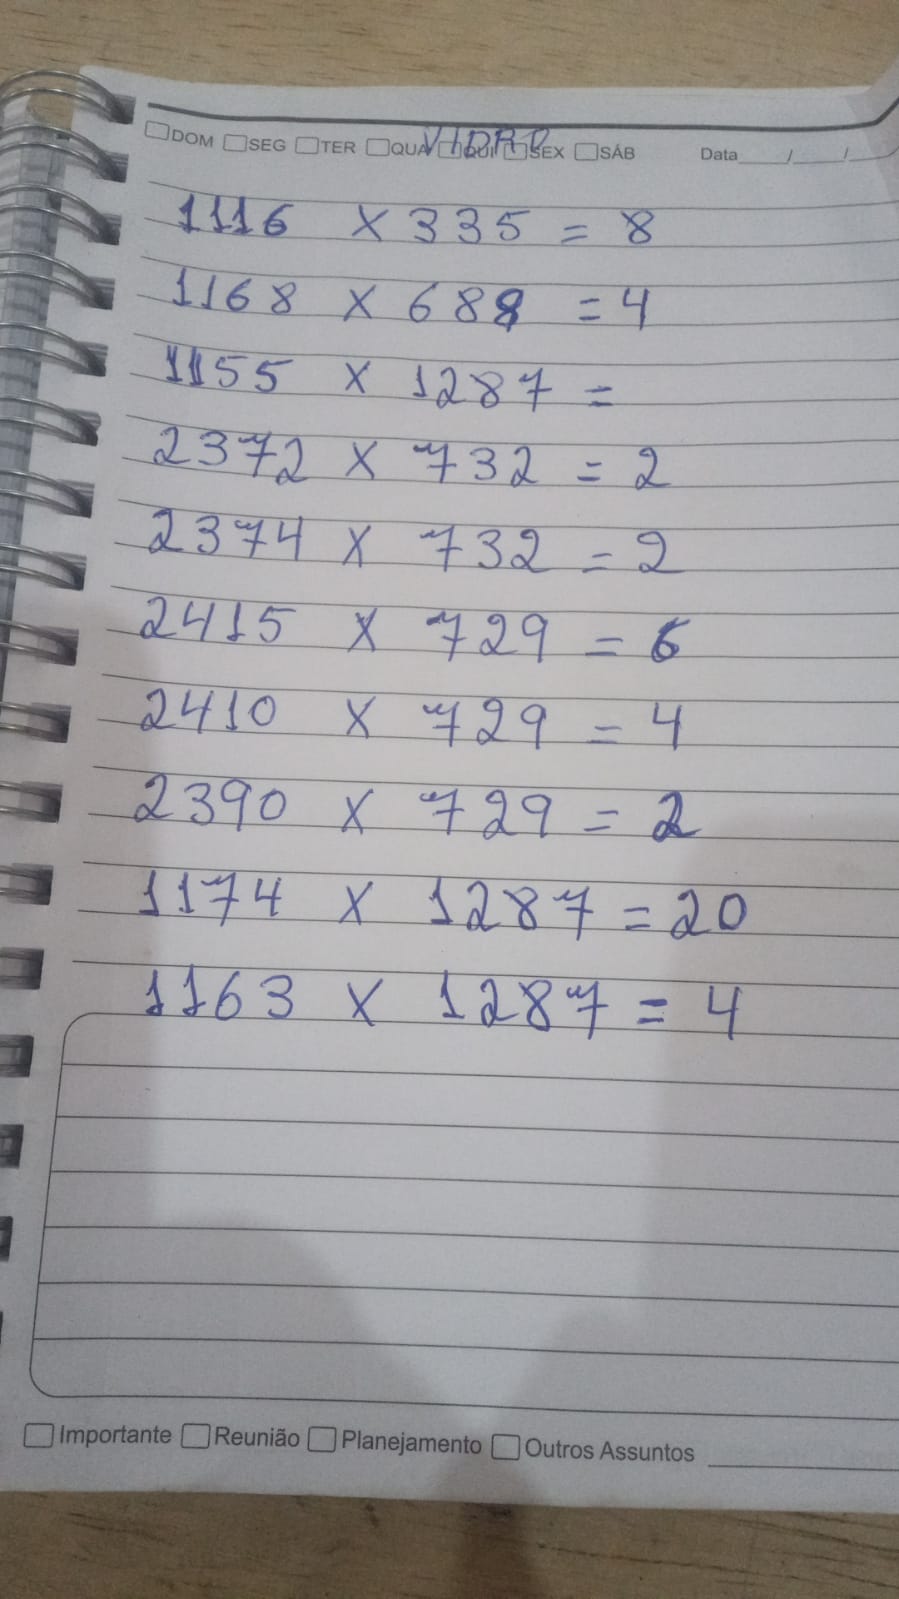 DOM SEG TER QUA QUI SEX SÁB Data / /
1116 X 335 = 8
1168 X 688 = 4
1155 X 1287 =
2372 X 732 = 2
2374 X 732 = 2
2415 X 729 = 6
2410 X 729 = 4
2390 X 729 = 2
1174 X 1287 = 20
1163 X 1287 = 4
Importante Reunião Planejamento Outros Assuntos